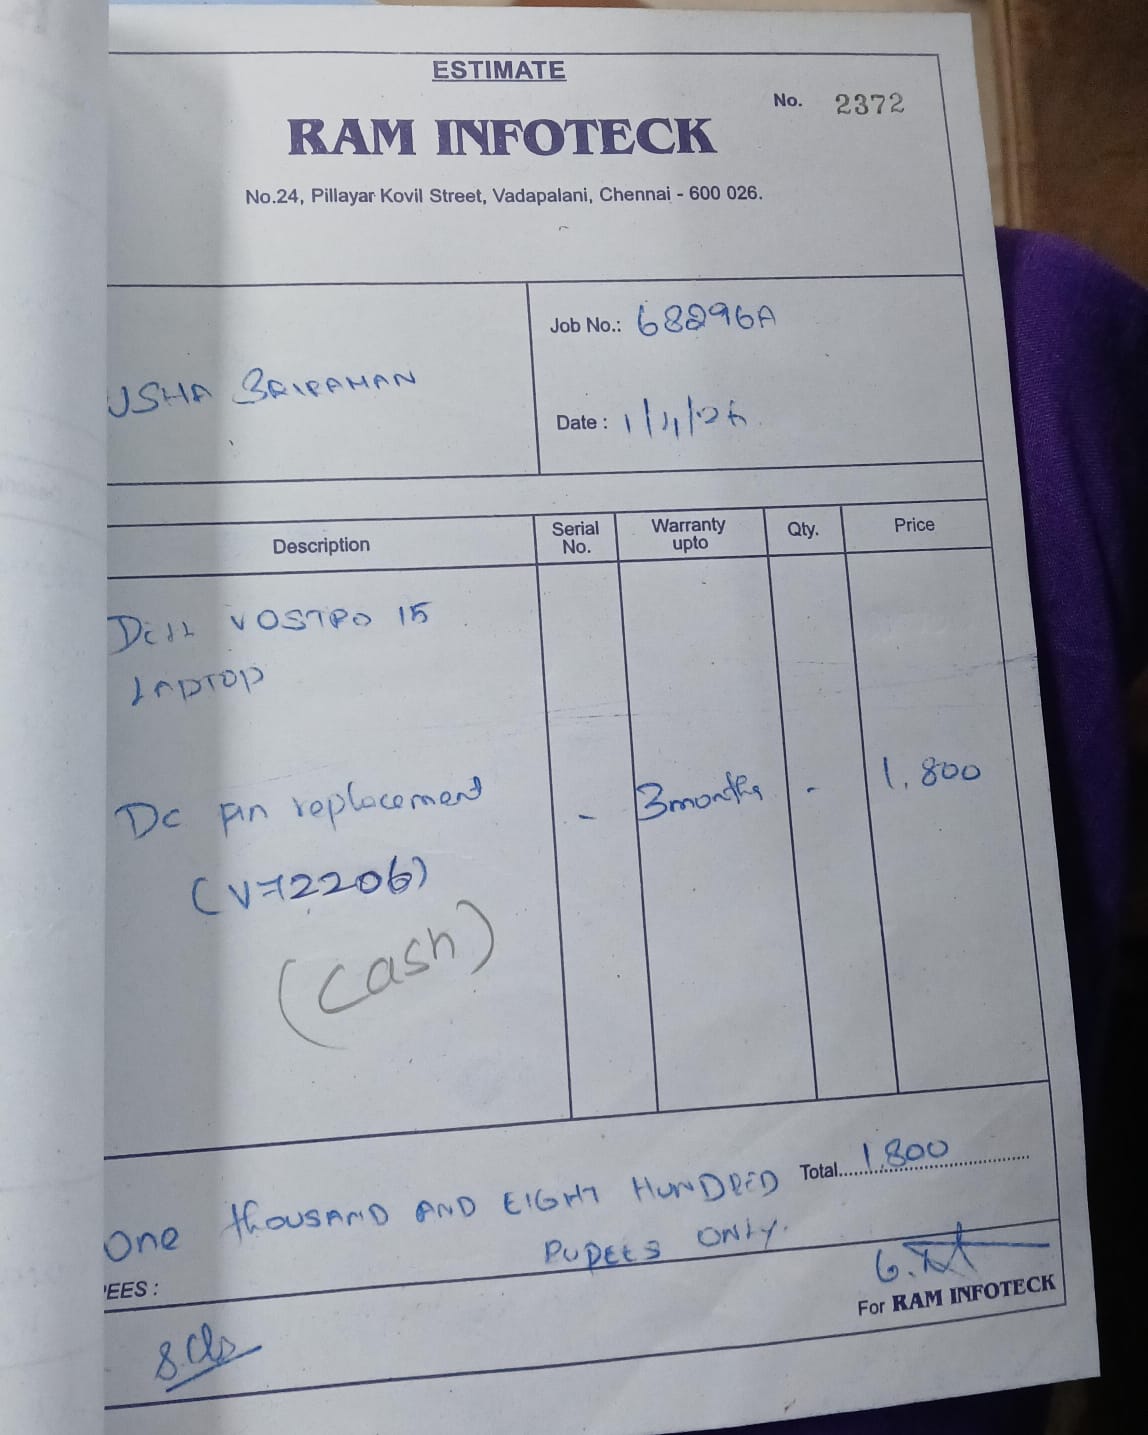 ESTIMATE
No. 2372
RAM INFOTECK
No.24, Pillayar Kovil Street, Vadapalani, Chennai - 600 026.
Job No.: 68296A
USHA SRIRAMAN
Date : 1/4/26
Description Serial No. Warranty upto Qty. Price
Dell VOSTRO 15
LAPTOP
DC pin replacement - 3months - 1,800
(V-12206)
(cash)
Total..... 1,800
One thousand AND EIGHT HUNDRED
RUPEES ONLY.
EES :
For RAM INFOTECK